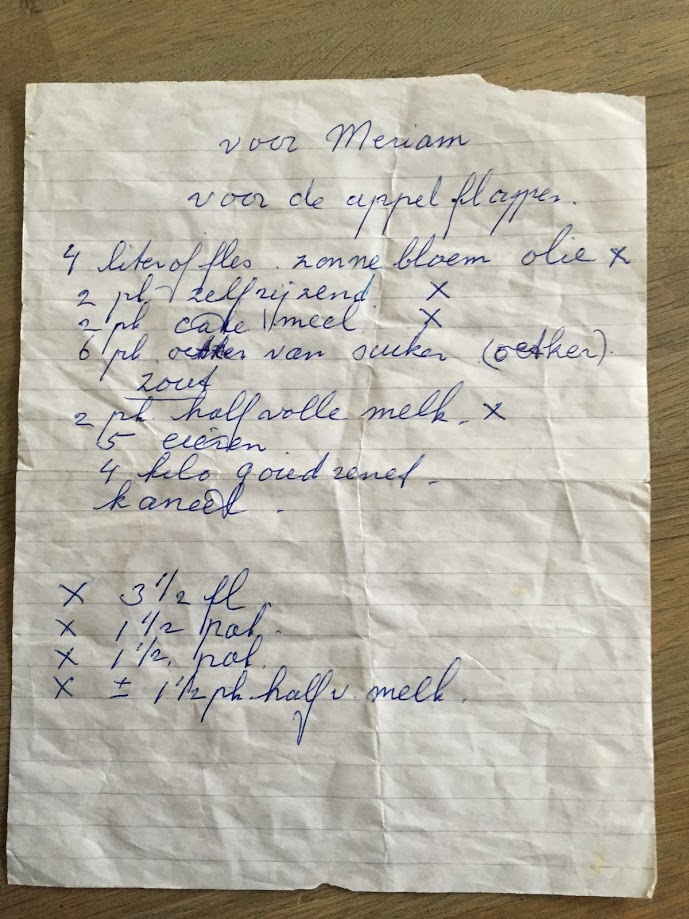 voor Meriam
voor de appel flappen.
4 liter of fles. zonne bloem olie x
2 pk zelfrijzend. x
2 pk cake meel x
6 pk oetker van suiker (oetker).
zout
2 pk half volle melk. x
5 eieren
4 kilo goudrenet.
kaneel.
x 3 1/2 fl.
x 1 1/2 pak.
x 1 1/2. pak.
x ± 1 1/2 pk. half v. melk.